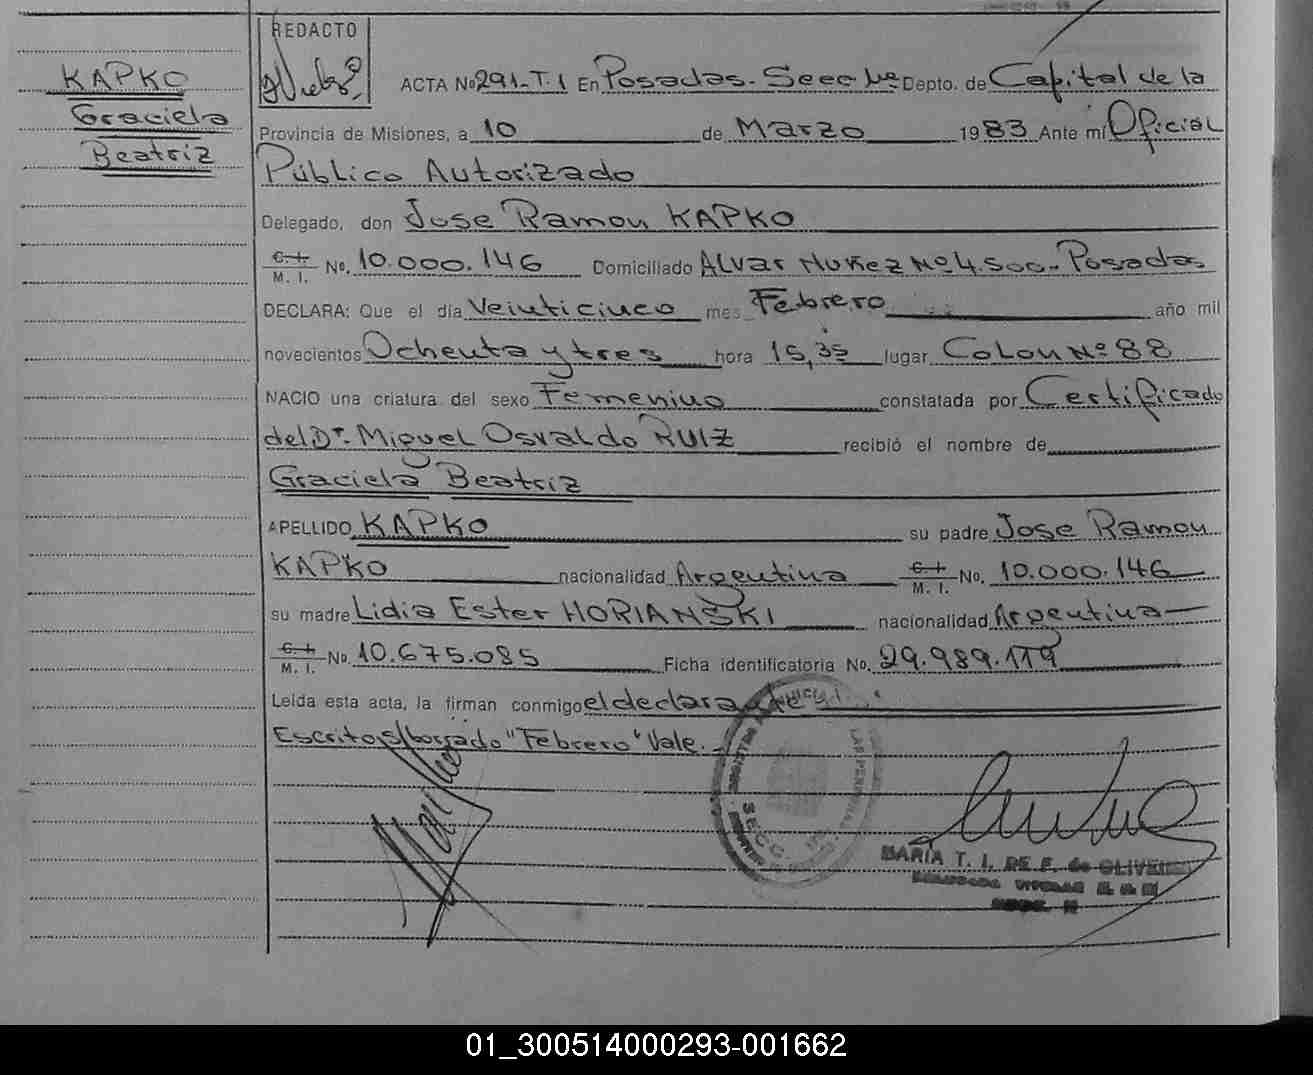 KAPKO
Graciela
Beatriz
REDACTO
ACTA No 291-T.1 En Posadas. Secc 1ra Depto. de Capital de la
Provincia de Misiones, a 10 de Marzo 1983 Ante mí Oficial
Público Autorizado
Delegado, don Jose Ramon KAPKO
C. I. M. I. No. 10.000.146 Domiciliado Alvar Nuñez Nº 4.500. Posadas
DECLARA: Que el día Veinticinco mes Febrero año mil
novecientos Ochenta y tres hora 15,35 lugar Colon Nº 88
NACIO una criatura del sexo Femenino constatada por Certificado
del Dr. Miguel Osvaldo RUIZ recibió el nombre de
Graciela Beatriz
APELLIDO KAPKO su padre Jose Ramon
KAPKO nacionalidad Argentina C. I. M. I. No. 10.000.146
su madre Lidia Ester HORIANSKI nacionalidad Argentina
C. I. M. I. No. 10.675.085 Ficha identificatoria No. 29.989.119
Leída esta acta, la firman conmigo el declarante
Escrito s/borrado "Febrero" Vale.
SECC.
MARÍA T. I. DE F. de OLIVEIRA
01_300514000293-001662